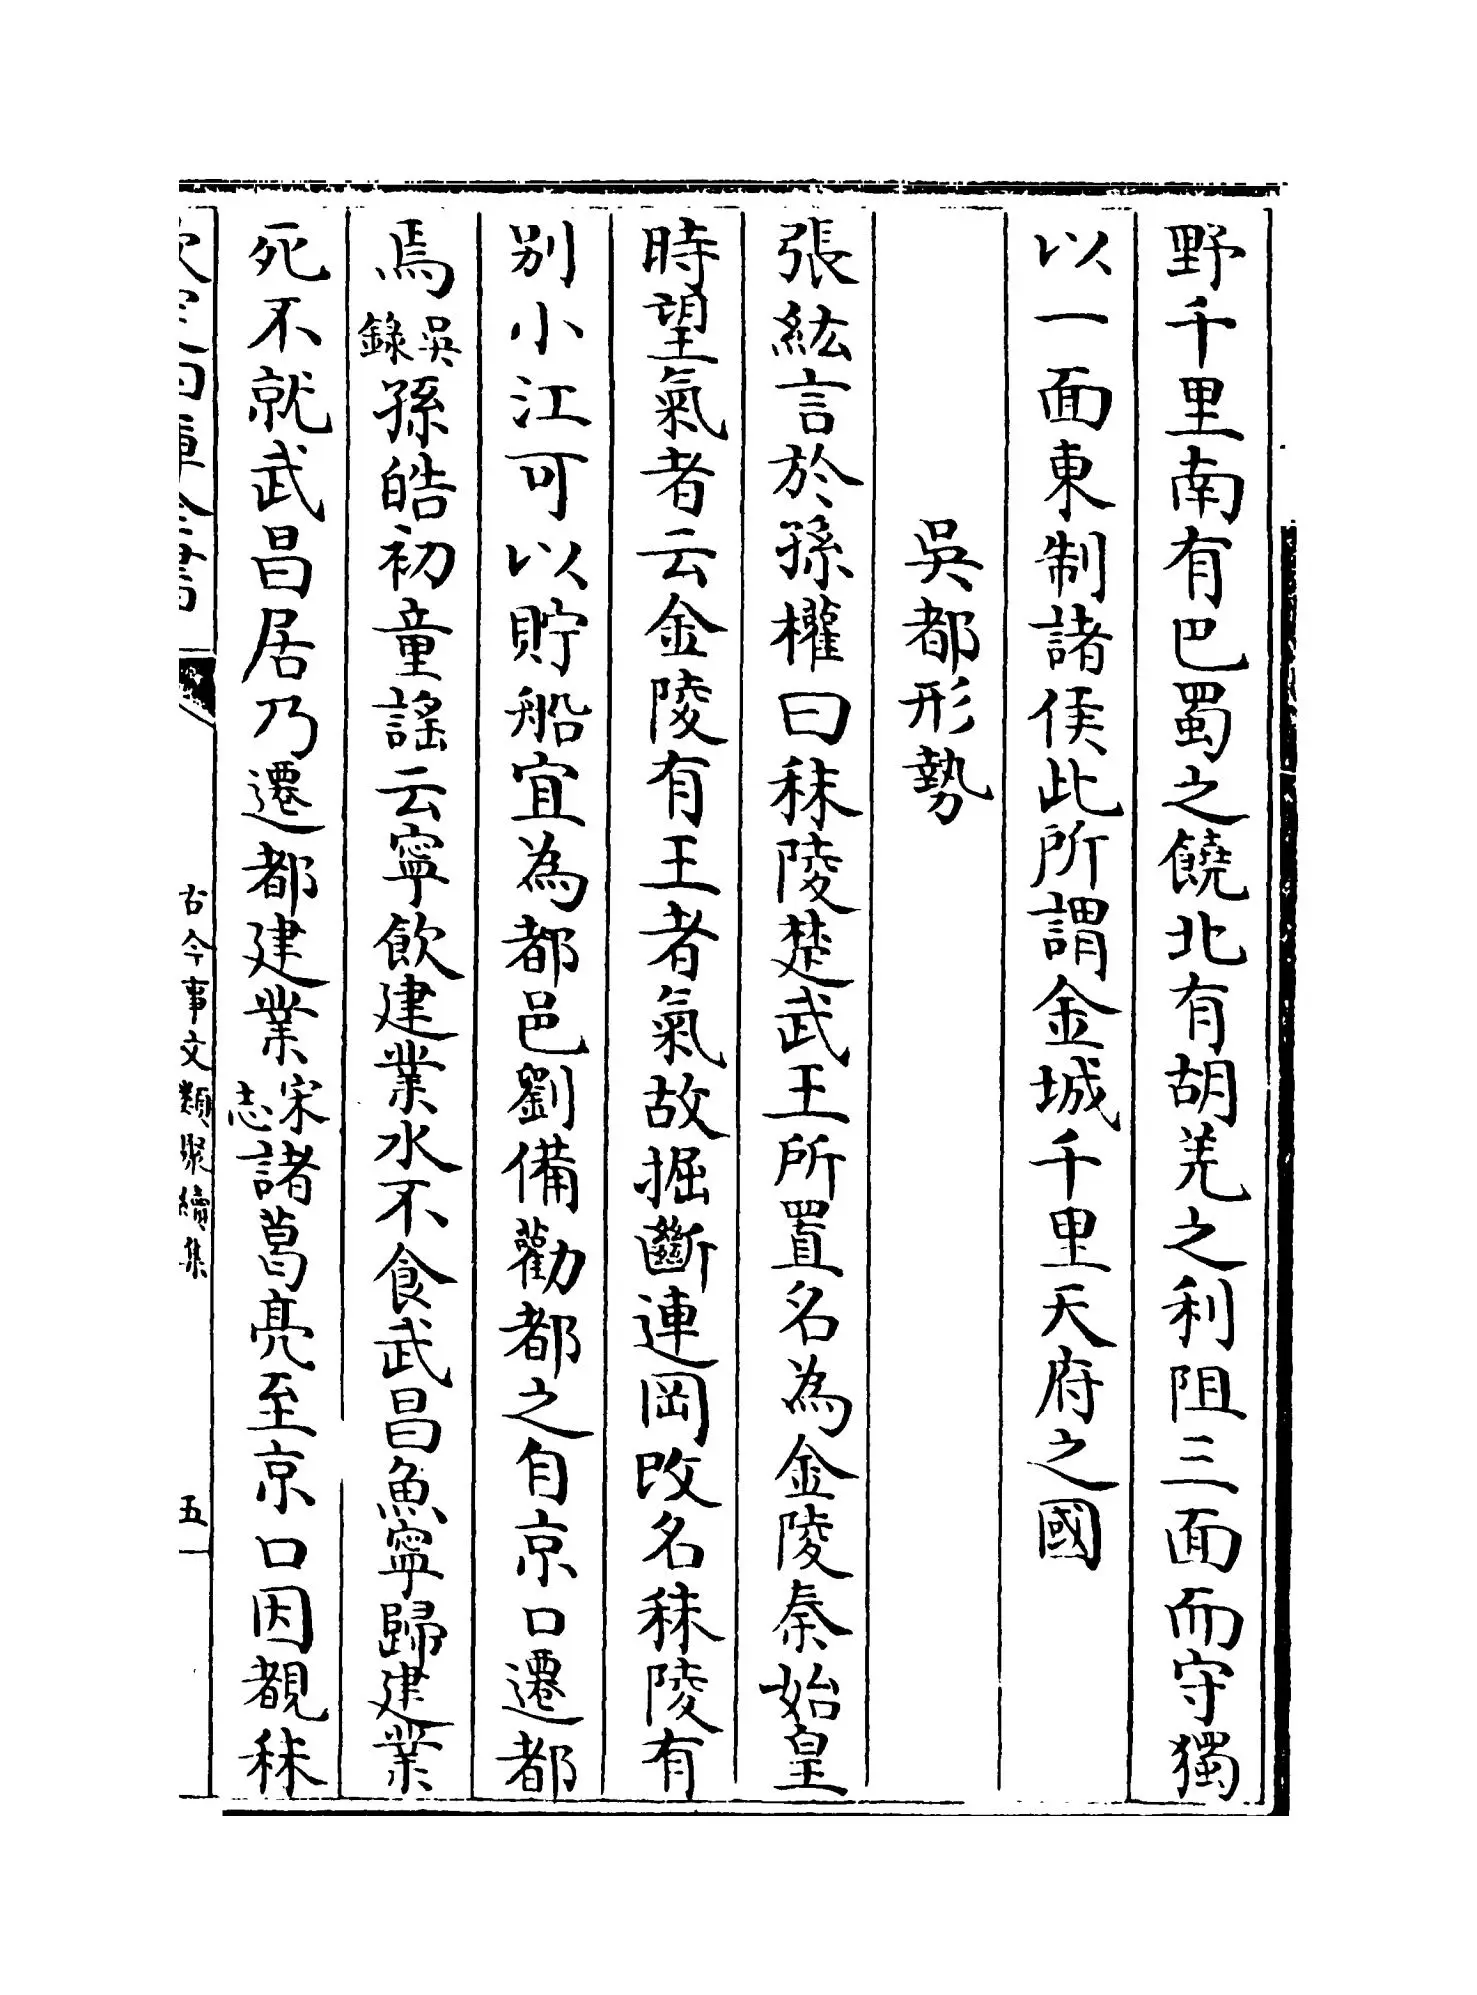 野千里南有巴蜀之饒北有胡羌之利阻三面而守獨
以一面東制諸侯此所謂金城千里天府之國
吳都形勢
張紘言於孫權曰秣陵楚武王所置名為金陵秦始皇
時望氣者云金陵有王者氣故掘斷連岡改名秣陵有
别小江可以貯船宜為都邑劉備勸都之自京口遷都
焉吳錄孫皓初童謡云寜飲建業水不食武昌魚寜歸建業
死不就武昌居乃遷都建業宋志諸葛亮至京口因覩秣
欽定四庫全書
古今事文類聚續集
五